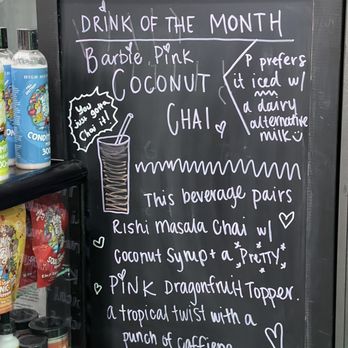 DRINK OF THE MONTH
Barbie Pink
COCONUT
CHAI
P prefers
it iced w/
a dairy
alternative
milk
You
just gotta
Chai it!
This beverage pairs
Rishi Masala Chai w/
Coconut Syrup + a PreTTY
PINK Dragonfruit Topper.
a tropical twist with a
punch of caffiene
CONDI